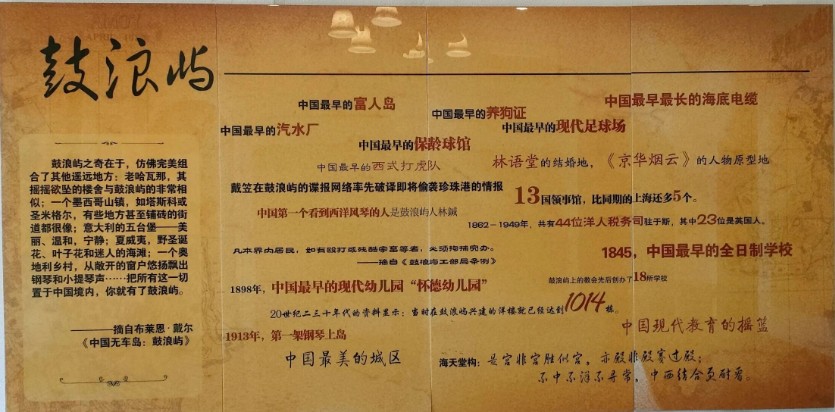 鼓浪屿
鼓浪屿之奇在于，仿佛完美组
合了其他遥远地方：老哈瓦那，其
摇摇欲坠的楼舍与鼓浪屿的非常相
似；一个墨西哥山镇，如塔斯科或
圣米格尔，有些地方甚至铺砖的街
道都很像；意大利的五台堡——美
丽、温和、宁静；夏威夷，野圣诞
花、叶子花和迷人的海滩；一个奥
地利乡村，从敞开的窗户悠扬飘出
钢琴和小提琴声……把所有这一切
置于中国境内，你就有了鼓浪屿。
——摘自布莱恩·戴尔
《中国无车岛：鼓浪屿》
中国最早的富人岛
中国最早的养狗证
中国最早最长的海底电缆
中国最早的汽水厂
中国最早的现代足球场
中国最早的保龄球馆
中国最早的西式打虎队
林语堂的结婚地，《京华烟云》的人物原型地
戴笠在鼓浪屿的谍报网络率先破译即将偷袭珍珠港的情报
13国领事馆，比同期的上海还多5个。
中国第一个看到西洋风琴的人是鼓浪屿人林鍼
1862－1949年，共有44位洋人税务司驻于斯，其中23位是英国人。
凡本界内居民，如有殴打或残酷家畜等者，火须拘捕究办。
——摘自《鼓浪屿工部局条例》
1845，中国最早的全日制学校
鼓浪屿上的教会先后创办了18所学校
1898年，中国最早的现代幼儿园“怀德幼儿园”
20世纪二三十年代的资料显示：当时在鼓浪屿兴建的洋楼就已经达到1014栋。
1913年，第一架钢琴上岛
中国现代教育的摇篮
中国最美的城区
海天堂构：是宫非宫胜似宫，亦殿非殿赛过殿；
不中不洋不寻常，中西结合更耐看。